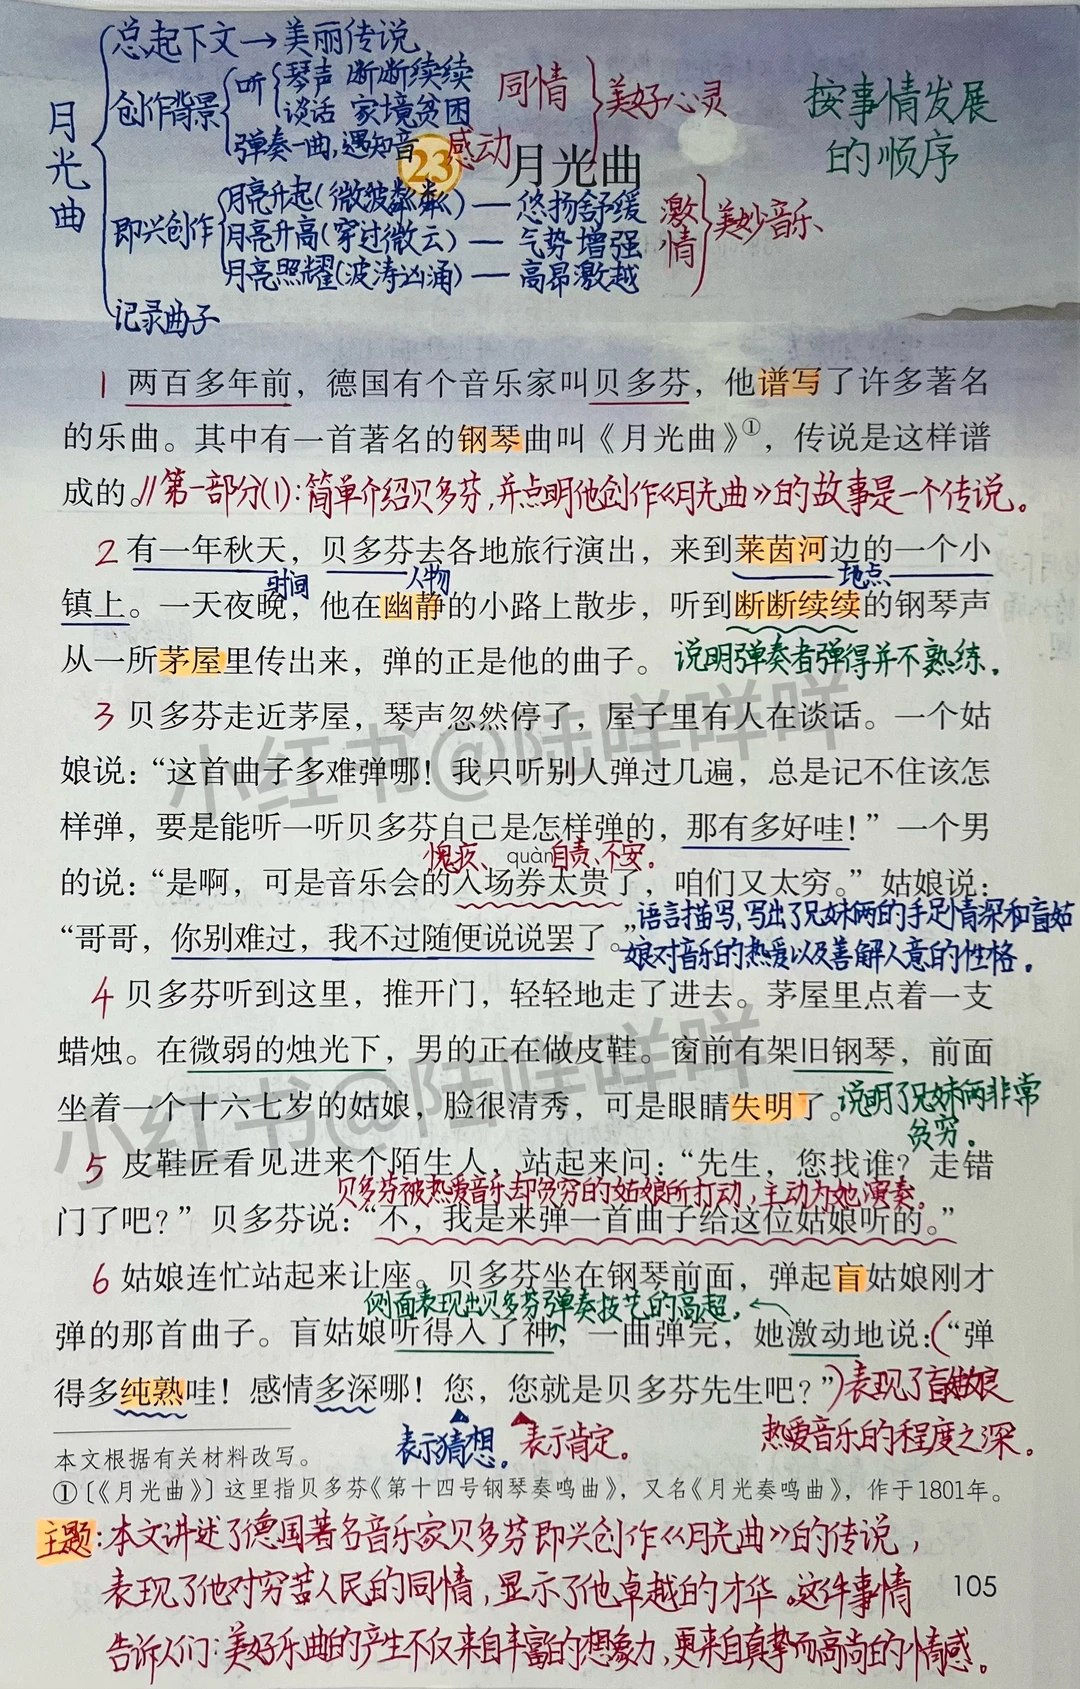 月光曲
总起下文→美丽传说
创作背景
听
琴声 断断续续
谈话 家境贫困
同情
弹奏一曲,遇知音 感动
美好心灵
即兴创作
月亮升起(微波粼粼)—悠扬舒缓
月亮升高(穿过微云)—气势增强
月亮照耀(波涛汹涌)—高昂激越
激情
美妙音乐
记录曲子
按事情发展
的顺序
23 月光曲
1 两百多年前，德国有个音乐家叫贝多芬，他谱写了许多著名
的乐曲。其中有一首著名的钢琴曲叫《月光曲》①，传说是这样谱
成的。//第一部分(1):简单介绍贝多芬,并点明他创作《月光曲》的故事是一个传说。
2 有一年秋天，贝多芬去各地旅行演出，来到莱茵河边的一个小
时间 人物 地点
镇上。一天夜晚，他在幽静的小路上散步，听到断断续续的钢琴声
从一所茅屋里传出来，弹的正是他的曲子。 说明弹奏者弹得并不熟练。
3 贝多芬走近茅屋，琴声忽然停了，屋子里有人在谈话。一个姑
娘说：“这首曲子多难弹哪！我只听别人弹过几遍，总是记不住该怎
样弹，要是能听一听贝多芬自己是怎样弹的，那有多好哇！”一个男
愧疚、 quàn 自责、不安。
的说：“是啊，可是音乐会的入场券太贵了，咱们又太穷。”姑娘说：
“哥哥，你别难过，我不过随便说说罢了。”
语言描写,写出了兄妹俩的手足情深和盲姑
娘对音乐的热爱以及善解人意的性格。
4 贝多芬听到这里，推开门，轻轻地走了进去。茅屋里点着一支
蜡烛。在微弱的烛光下，男的正在做皮鞋。窗前有架旧钢琴，前面
坐着一个十六七岁的姑娘，脸很清秀，可是眼睛失明了。
说明了兄妹俩非常
贫穷。
5 皮鞋匠看见进来个陌生人，站起来问：“先生，您找谁？走错
贝多芬被热爱音乐却贫穷的姑娘所打动,主动为她演奏。
门了吧？”贝多芬说：“不，我是来弹一首曲子给这位姑娘听的。”
6 姑娘连忙站起来让座。贝多芬坐在钢琴前面，弹起盲姑娘刚才
侧面表现出贝多芬弹奏技艺的高超。
弹的那首曲子。盲姑娘听得入了神，一曲弹完，她激动地说：(“弹
得多纯熟哇！感情多深哪！您，您就是贝多芬先生吧？”)表现了盲姑娘
热爱音乐的程度之深。
表示猜想。 表示肯定。
本文根据有关材料改写。
①〔《月光曲》〕这里指贝多芬《第十四号钢琴奏鸣曲》，又名《月光奏鸣曲》，作于1801年。
主题:本文讲述了德国著名音乐家贝多芬即兴创作《月光曲》的传说,
表现了他对穷苦人民的同情,显示了他卓越的才华。这件事情
告诉人们:美好乐曲的产生不仅来自丰富的想象力,更来自真挚而高尚的情感。
105
小红书@陆咩咩咩
小红书@陆咩咩咩